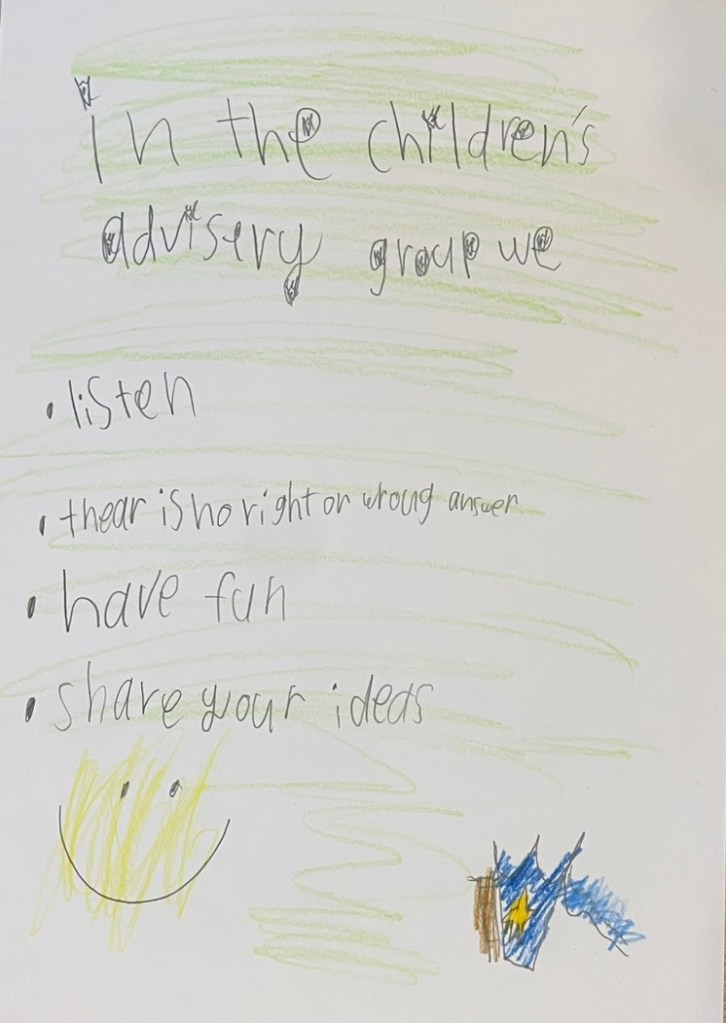 in the children's
advisery group we
• listen
• thear is no right or wroug answer
• have fun
• share your ideas